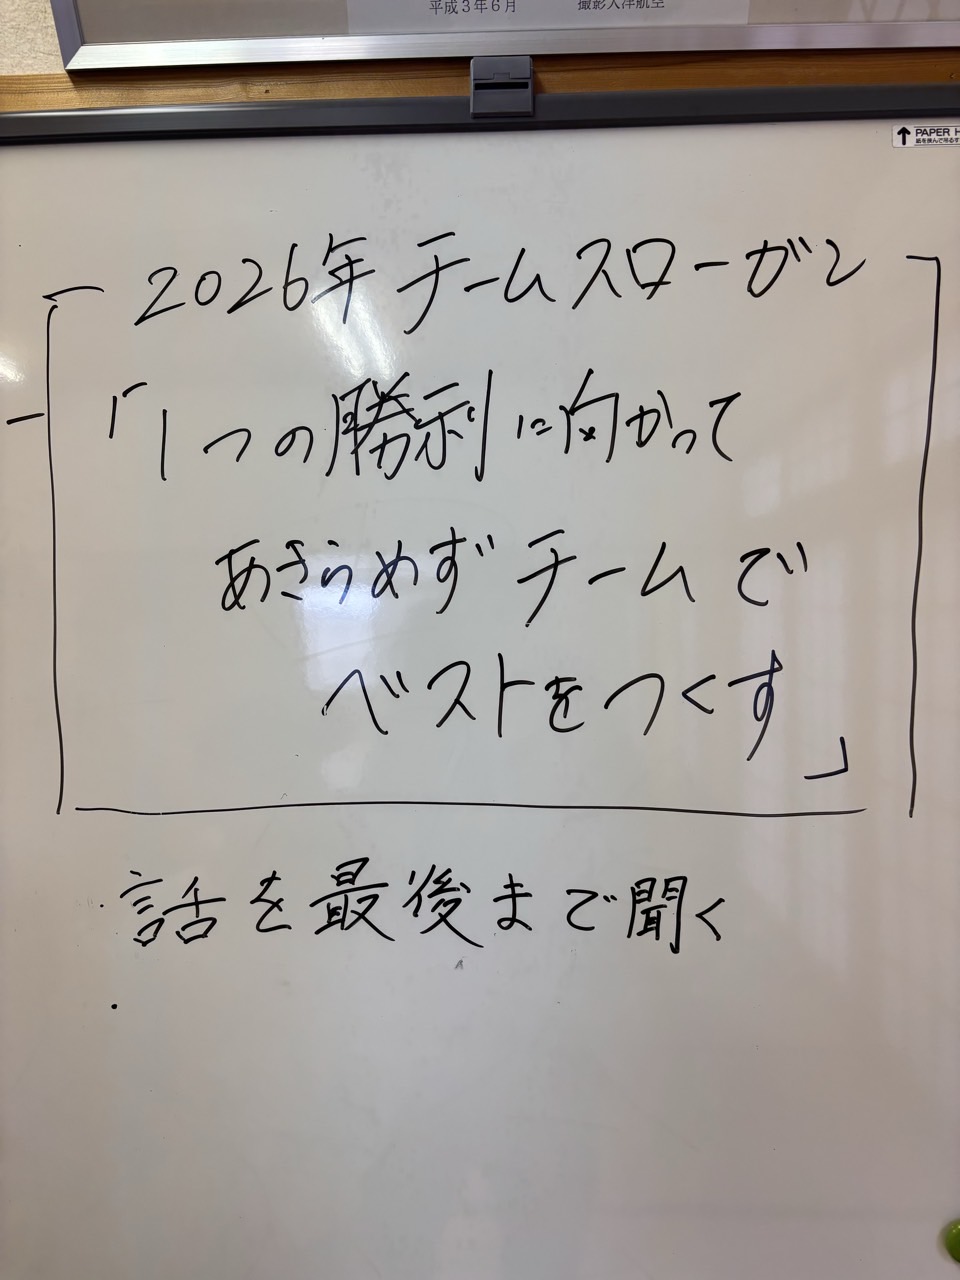 平成3年6月 撮影大洋航空
PAPER H
2026年 チームスローガン
「1つの勝利に向かって
あきらめずチームで
ベストをつくす」
・話を最後まで聞く
・